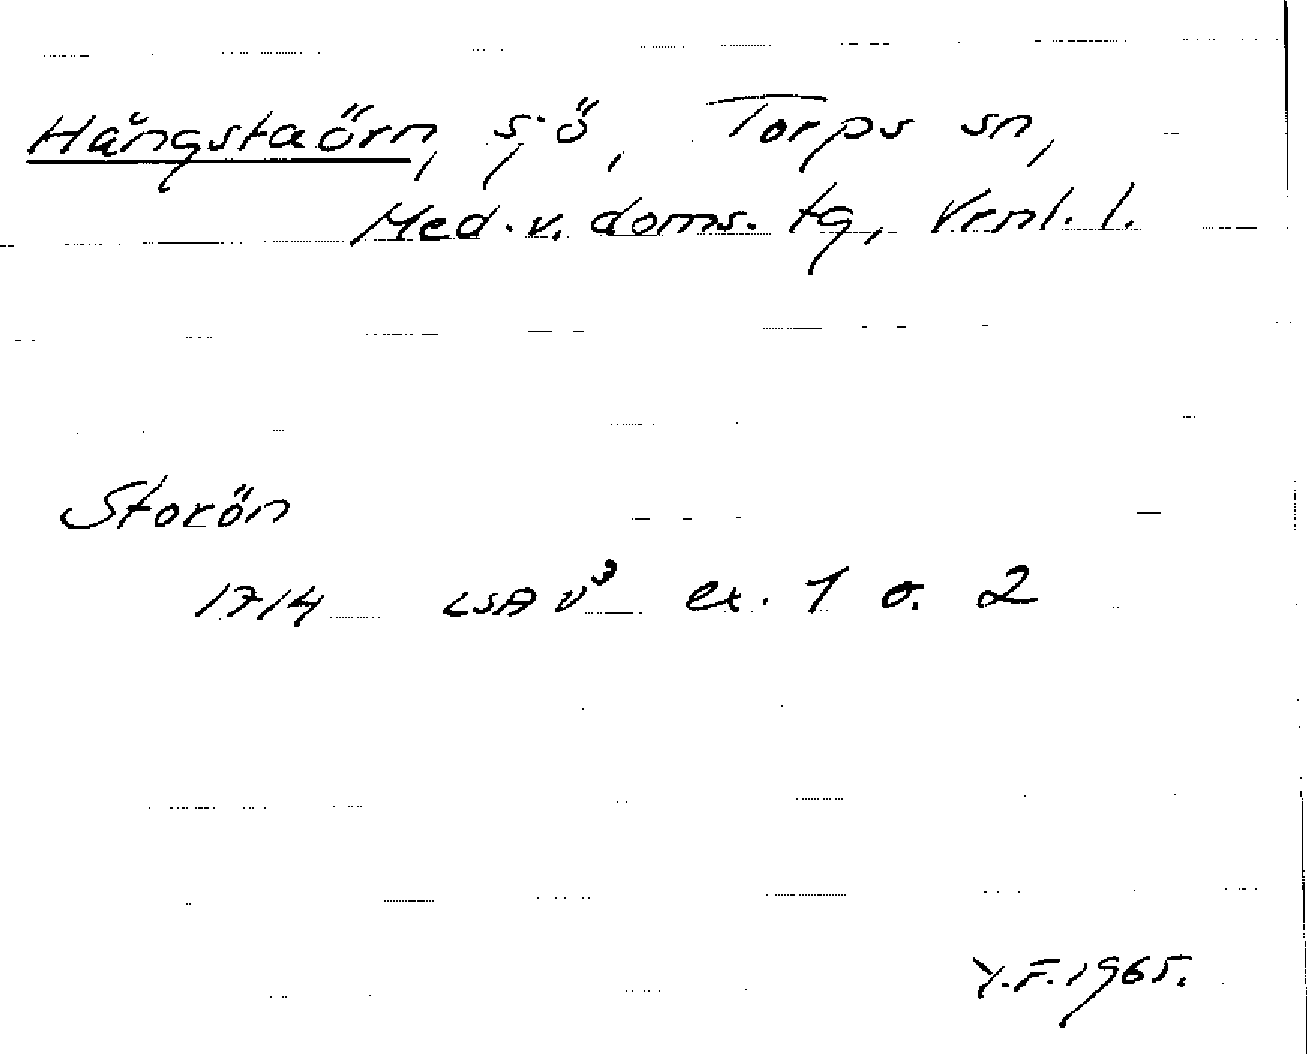 Hångstaörn, sjö, Torps sn,
Med. v. doms. tg, Vrnl. l.
Storön
1714 LSA V³ ex. 1 o. 2
Y.F. 1965.